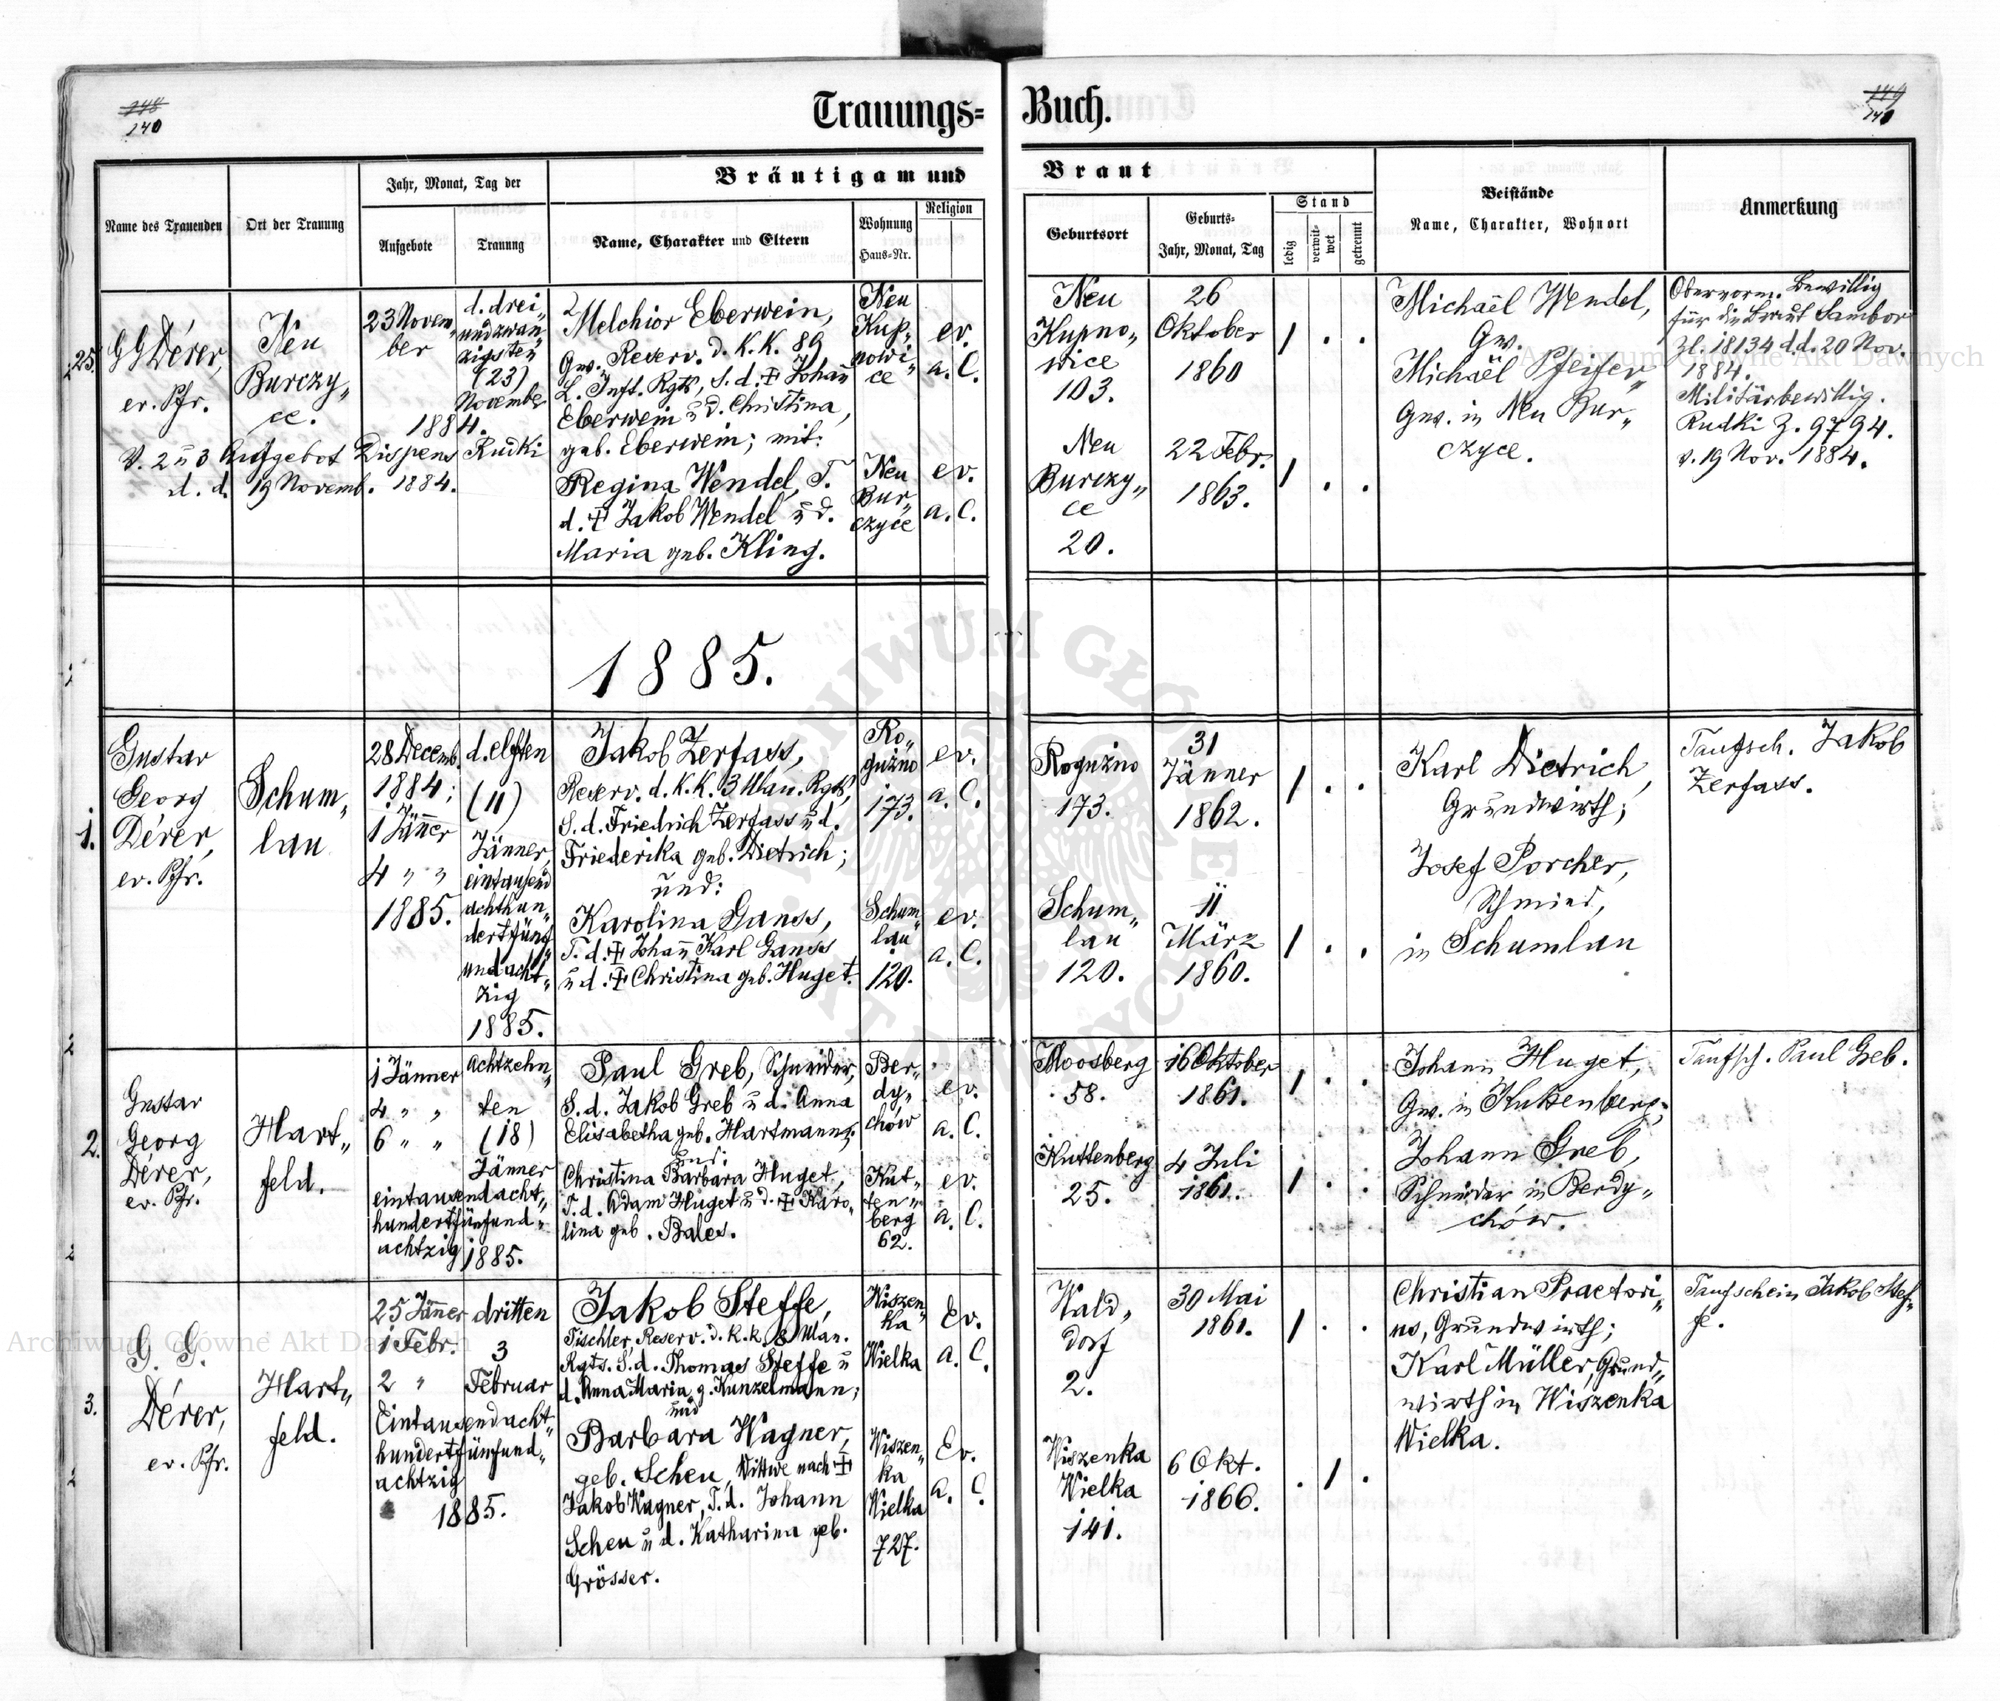 Trauungs=
Buch.
248
240
249
241
Name des Trauenden
Ort der Trauung
Jahr, Monat, Tag der
Aufgebote
Trauung
Bräutigam und
Name, Charakter und Eltern
Wohnung
Haus=Nr.
Religion
Braut
Geburtsort
Geburts=
Jahr, Monat, Tag
Stand
ledig
verwit=
wet
getrennt
Beistände
Name, Charakter, Wohnort
Anmerkung
25.
G G Dérer,
ev. Pfr.
Neu
Burczy„
ce.
23 Novem„
ber
d. drei„
undzwan„
zigsten
(23)
November
1884.
V. 2 u 3 Aufgebot Dispens Rudki
d. d. 19 Novemb. 1884.
Melchior Eberwein,
Gw. Reserv. d. K. K. 89
L. Inft. Rgts, S. d. ‡ Johan̄
Eberwein u d. Christina,
geb. Eberwein; mit:
Regina Wendel, T.
d. ‡ Jakob Wendel u d.
Maria geb. Kling.
Neu
Kup„
nowi„
ce
ev.
a. C.
Neu
Bur„
czyce
ev.
a. C.
Neu
Kupno„
wice
103.
26
Oktober
1860
1 . .
Neu
Burczy„
ce
20.
22 Febr.
1863.
1 . .
Michaël Wendel,
Gw.
Michaël Pfeifer„
Gw. in Neu Bur„
czyce.
Obervorm. Bewillig
für die Braut Sambor
Zl. 18134 d.d. 20 Nov.
1884.
Militärbewillig.
Rudki Z. 9794.
v. 19 Nov. 1884.
1885.
1.
Gustav
Georg
Dérer,
ev. Pfr.
Schum„
lau
28 Decemb.
1884;
1 Jän̄er
4 „ „
1885.
d. elften
(11)
Jänner,
eintausend
achthun„
dertfünf
und acht„
zig
1885.
Jakob Zerfass,
Reserv. d. K. K. 3 Ulan. Rgts,
S. d. Friedrich Zerfass u d.
Friederika geb. Dietrich;
und:
Karolina Ganss,
T. d. ‡ Johan̄ Karl Ganss
u d. ‡ Christina geb. Huget.
Ro„
guźno
173.
ev.
a. C.
Schum„
lau
120.
ev.
a. C.
Roguźno
173.
31
Jänner
1862.
1 . .
Schum„
lau
120.
11
März
1860.
1 . .
Karl Dietrich,
Grundwirth;
Josef Porcher,
Schmied,
in Schumlau
Taufsch. Jakob
Zerfass.
2.
Gustav
Georg
Dérer,
ev. Pfr.
Hart„
feld.
1 Jänner
4 „ „
6 „ „
achtzehn„
ten
(18)
Jänner
eintausendacht„
hundertfünfund„
achtzig
1885.
Paul Greb, Schneider,
S. d. Jakob Greb u d. Anna
Elisabetha geb. Hartmann;
und:
Christina Barbara Huget,
T. d. Adam Huget u d. ‡ Karo„
lina geb. Bales.
Ber„
dy„
chów
ev.
a. C.
Kut„
ten„
berg
62.
ev.
a. C.
Moosberg
58.
16 Oktober
1861.
1 . .
Kuttenberg
25.
4 Juli
1861.
1 . .
Johann Huget,
Gw. in Kuttenberg;
Johann Greb,
Schneider in Berdy„
chów.
Taufsch. Paul Greb.
3.
G. G.
Dérer,
ev. Pfr.
Hart„
feld.
25 Jänner
1 Febr.
2 „
dritten
3
Februar
Eintausendacht„
hundertfünfund„
achtzig
1885.
Jakob Steffe,
Tischler, Reserv. d. k. k. 8 Ulan.
Rgts. S. d. Thomas Steffe u
d. Anna Maria g. Kunzelmann;
und
Barbara Wagner,
geb. Scheu, Wittwe nach ‡
Jakob Wagner, T. d. Johann
Scheu u d. Katharina geb.
Grösser.
Wiszen„
ka
Wielka
Ev.
a. C.
Wiszen„
ka
Wielka
727.
Ev.
a. C.
Wald„
dorf
2.
30 Mai
1861.
1 . .
Wiszenka
Wielka
141.
6 Okt.
1866.
. 1 .
Christian Praetori„
us, Grundwirth;
Karl Müller, Grund„
wirth in Wiszenka
Wielka.
Taufschein Jakob Stef„
fe.
Archiwum Główne Akt Dawnych
Archiwum Główne Akt Dawnych
ARCHIWUM GŁÓWNE AKT DAWNYCH